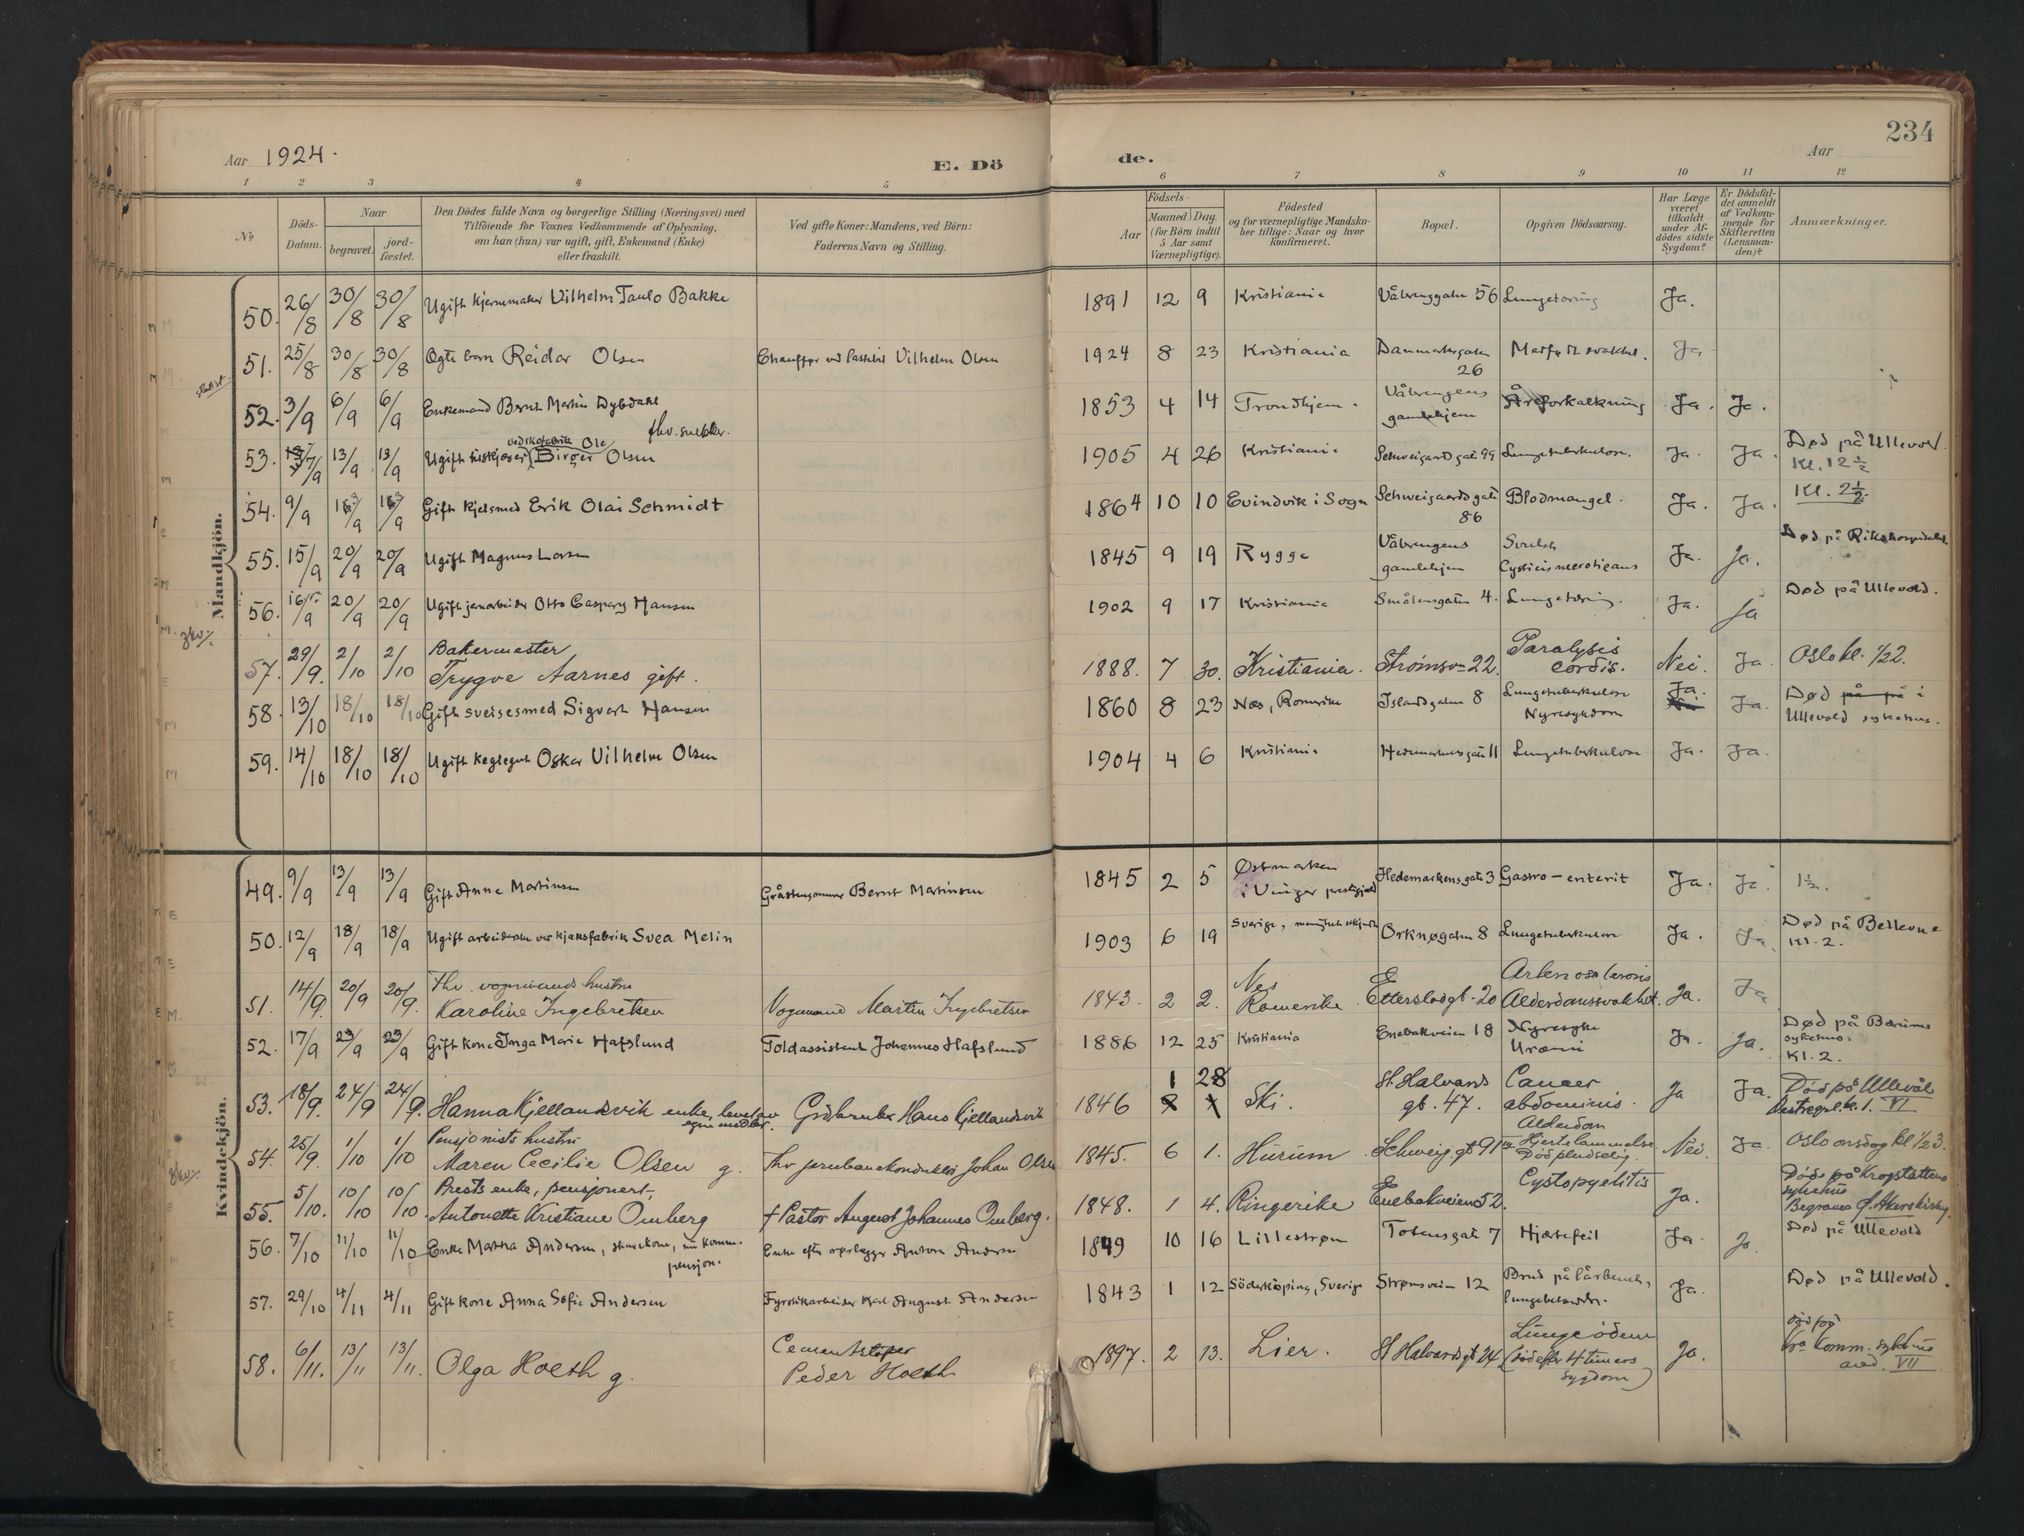 234
Aar 1924.
E. Dö
de.
Aar
1 2 3 4 5 6 7 8 9 10 11 12
No
Döds-Datum.
Naar
begravet.
jord-fæstet.
Den Dödes fulde Navn og borgerlige Stilling (Næringsvei) med
Tilföiende for Voxnes Vedkommende af Oplysning,
om han (hun) var ugift, gift, Enkemand (Enke)
eller fraskilt.
Ved gifte Koner: Mandens, ved Börn:
Faderens Navn og Stilling.
Födsels-
Aar
Maaned
Dag.
(for Börn indtil 5 Aar samt Værnepligtige).
Födested
og for værnepligtige Mandskaber tillige: Naar og hvor konfirmeret.
Bopæl.
Opgiven Dödsaarsag.
Har Læge været tilkaldt under Afdödes sidste Sygdom?
Er Dödsfaldet anmeldt af Vedkommende for Skifteretten (Lensmanden)?
Anmærkninger.
Mandkjön.
50. 26/8 30/8 30/8 Ugift Vilhelm Paulo Bakke 1891 12 9 Kristiania Vålerenggaten 56 Lungetæring Ja.
51. 25/8 30/8 30/8 Egte barn Reidar Olsen Chauffør Vilhelm Olsen 1924 8 23 Kristiania Danmarksgaten 26 Medfødt svakhet. Ja
52. 3/9 6/9 6/9 Enkemand Bernt Martin Dybdahl fhv. snekker. 1853 4 14 Trondhjem. Vålerengens gamlehjem Åreforkalkning Ja. Ja.
53. 7/9 13/9 13/9 Ugift Ole Birger Olsen 1905 4 26 Kristiania Schweigaardsgate 99 Lungetuberkulose. Ja. Ja. Død på Ullevol Kl. 12 1/2
54. 9/9 13/9 13/9 Gift Kjelsmed Erik Olai Schmidt 1864 10 10 Evindvik i Sogn Schweigaardsgate 86 Blodmangel. Ja. Ja. Kl. 2 1/2.
55. 15/9 20/9 20/9 Ugift Magnus Larsen 1845 9 19 Rygge Vålerengens gamlehjem Cysticis Ja. Ja. Død på Rikshospitalet
56. 16/9 20/9 20/9 Ugift jernarbeider Otto Casperg Hansen 1902 9 17 Kristiania Smålensgaten 4. Lungetæring. Ja. Ja Død på Ullevold.
57. 29/9. 2/10 2/10 Bakermester Trygve Aarnes gift. 1888. 7 30. Kristiania. Strømsvn 22. Paralysis cordis. Nei. Ja. Oslo kl. 1/2 2.
58. 13/10 18/10 18/10 Gift sveisesmed Sigvart Hansen 1860 8 23 Næs, Romerike Islandsgaten 8 Lungetuberkulose Nyresykdom Ja. Ja. Død på på i Ullevold sykehus.
59. 14/10 18/10 18/10 Ugift keglegut Oskar Vilhelm Olsen 1904 4 6 Kristiania Hedemarkensgate 11 Lungetuberkulose Ja. Ja.
Kvindekjön.
49. 9/9 13/9 13/9 Gift Anne Martinsen Gråstensgammer Bernt Martinsen 1845 2 5 Østmarken i Vinger prestgjeld Hedemarkensgate 3 Gastro-enterit Ja. Ja. 1 1/2.
50. 12/9 18/9 18/9 Ugift arbeiderske ved kjeksfabrik Svea Melin 1903 6 19 Sverige, Orknøgaten 8 Lungetuberkulose Ja. Ja. Død på Bellevue Kl. 2.
51. 14/9. 20/9 20/9. Fhv. vognmands hustru Karoline Ingebretsen Vognmand Martin Ingebretsen 1843. 2 2. Nes Romerike. Etterstadgt. 20 Alderdomssvakhet. Ja. Ja
52. 17/9 23/9 23/9 Gift kone Inga Marie Hafslund Toldassistent Johannes Hafslund 1886 12 25 Kristiania Enebakveien 18 Nyresyke Uræmi Ja. Ja. Død på Bærums sykehus. Kl. 2.
53. 18/9. 24/9 24/9. Hanna Kjellandsvik enke, lever av egne midler. Grdbruker Hans Kjellandsvik 1846 1 28 Ski. St. Halvards gt. 47. Cancer abdominis. Ja Ja. Död på Ullevål kl. 1. VI
54. 25/9. 1/10 1/10 Pensjonists hustru Maren Cecilie Olsen g. Fhv Johan Olsen 1845. 6 1. Hurum. Schweig gt 91 Alderdom Hjertelammelse Död pludselig. Nei. Ja. Oslo onsdag kl 1/2 3.
55. 5/10. 10/10. 10/10. Prests enke, pensjonert, Antonette Kristiane Omberg † Pastor August Johannes Omberg. 1848. 1 4. Ringerike Enebakveien 52. Cystopyelitis Ja. Död på Krogstøttens sykehus Begraves
56. 7/10 11/10 11/10 Enke Mathea Andersen, nu komm. pensjon. Enke efter oprlægger Anton Andersen 1849 10 16 Lillestrøm Totensgate 7 Hjertefeil Ja. Ja. Død på Ullevold
57. 29/10 4/11 4/11 Gift kone Anna Sofie Andersen Fyrstikarbeider Karl August Andersen 1843 1 12 Söderköping, Sverige Strømsveien 12 Brud på lårbenet, lungebetændelse. Ja. Død på Ullevold.
58. 6/11. 13/11 13/11. Olga Hoeth g. Cementstøper Peder Hoeth 1897. 2 13. Lier. St Halvards gt 24 Lungeödem (död efter 4 timers sygdom) Ja. död på Kra Komm. sykehus avd. VII